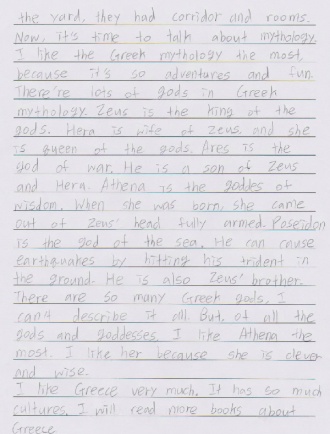 the yard, they had corridor and rooms.
Now, it's time to talk about mythology.
I like the Greek mythology the most,
because it's so adventures and fun.
There're lots of gods in Greek
mythology. Zeus is the king of the
gods. Hera is wife of Zeus, and she
is queen of the gods. Ares is the
god of war. He is a son of Zeus
and Hera. Athena is the goddes of
wisdom. When she was born, she came
out of Zeus' head fully armed. Poseidon
is the god of the sea. He can cause
earthquakes by hitting his trident in
the ground. He is also Zeus' brother.
There are so many Greek gods, I
can't describe it all. But, of all the
gods and goddesses, I like Athena the
most. I like her because she is clever
and wise.
I like Greece very much. It has so much
cultures. I will read more books about
Greece